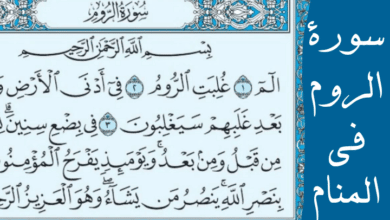 سُورَةُ الرُّومِ
بِسْمِ اللَّهِ الرَّحْمَٰنِ الرَّحِيمِ
الٓمٓ ١ غُلِبَتِ الرُّومُ ٢ فِىٓ أَدْنَى الْأَرْضِ
بَعْدِ غَلَبِهِمْ سَيَغْلِبُونَ ٣ فِى بِضْعِ سِنِينَ
مِن قَبْلُ وَمِنۢ بَعْدُ وَيَوْمَئِذٍ يَفْرَحُ الْمُؤْمِنُو
بِنَصْرِ اللَّهِ يَنصُرُ مَن يَشَآءُ وَهُوَ الْعَزِيزُ
سورة
الروم
فى
المنام